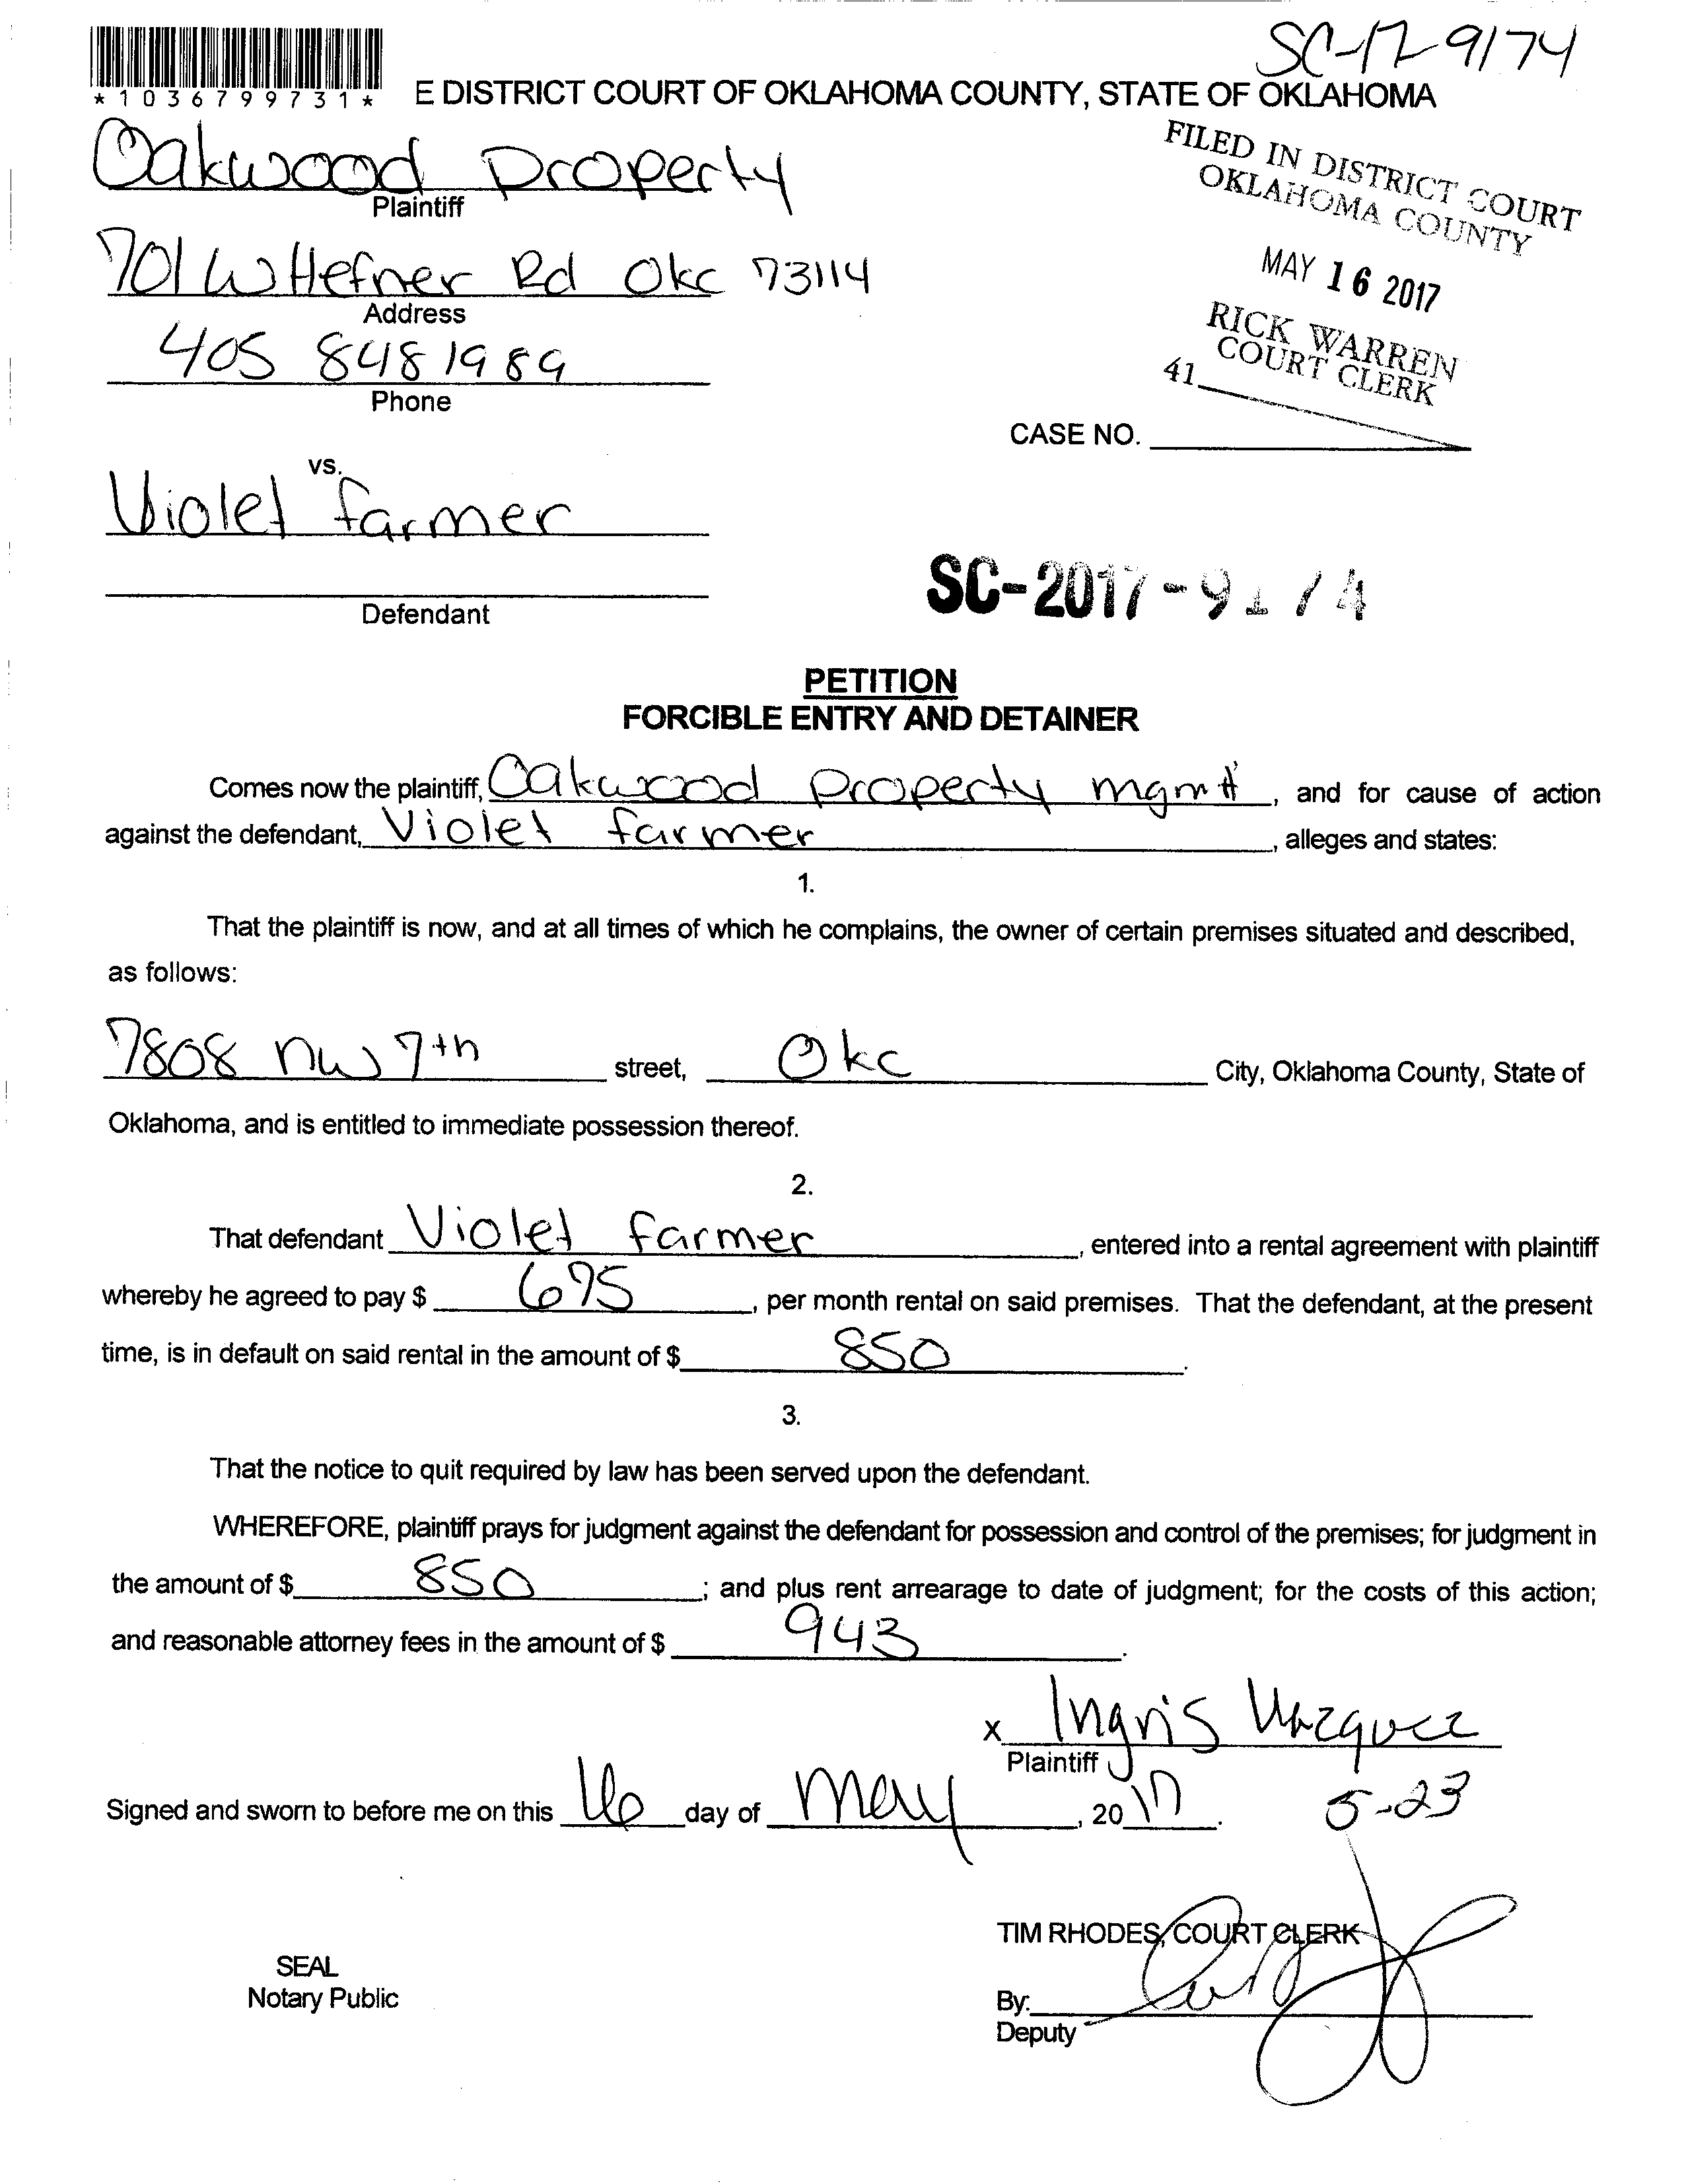 SC-17-9174
*1036799731*
E DISTRICT COURT OF OKLAHOMA COUNTY, STATE OF OKLAHOMA
Oakwood Property
Plaintiff
FILED IN DISTRICT COURT
OKLAHOMA COUNTY
MAY 16 2017
RICK WARREN
COURT CLERK
41
701 W Hefner Rd Okc 73114
Address
405 848 1989
Phone
CASE NO.
vs.
Violet farmer
Defendant
SC-2017-9174
PETITION
FORCIBLE ENTRY AND DETAINER
Comes now the plaintiff, Oakwood Property mgmt, and for cause of action
against the defendant, Violet farmer, alleges and states:
1.
That the plaintiff is now, and at all times of which he complains, the owner of certain premises situated and described,
as follows:
7808 nw 7th street, Okc City, Oklahoma County, State of
Oklahoma, and is entitled to immediate possession thereof.
2.
That defendant Violet farmer, entered into a rental agreement with plaintiff
whereby he agreed to pay $ 675, per month rental on said premises. That the defendant, at the present
time, is in default on said rental in the amount of $ 850.
3.
That the notice to quit required by law has been served upon the defendant.
WHEREFORE, plaintiff prays for judgment against the defendant for possession and control of the premises; for judgment in
the amount of $ 850; and plus rent arrearage to date of judgment; for the costs of this action;
and reasonable attorney fees in the amount of $ 943.
x Ingris Vazquez
Plaintiff
Signed and sworn to before me on this 16 day of may, 2017.
5-23
TIM RHODES, COURT CLERK
SEAL
Notary Public
By:
Deputy